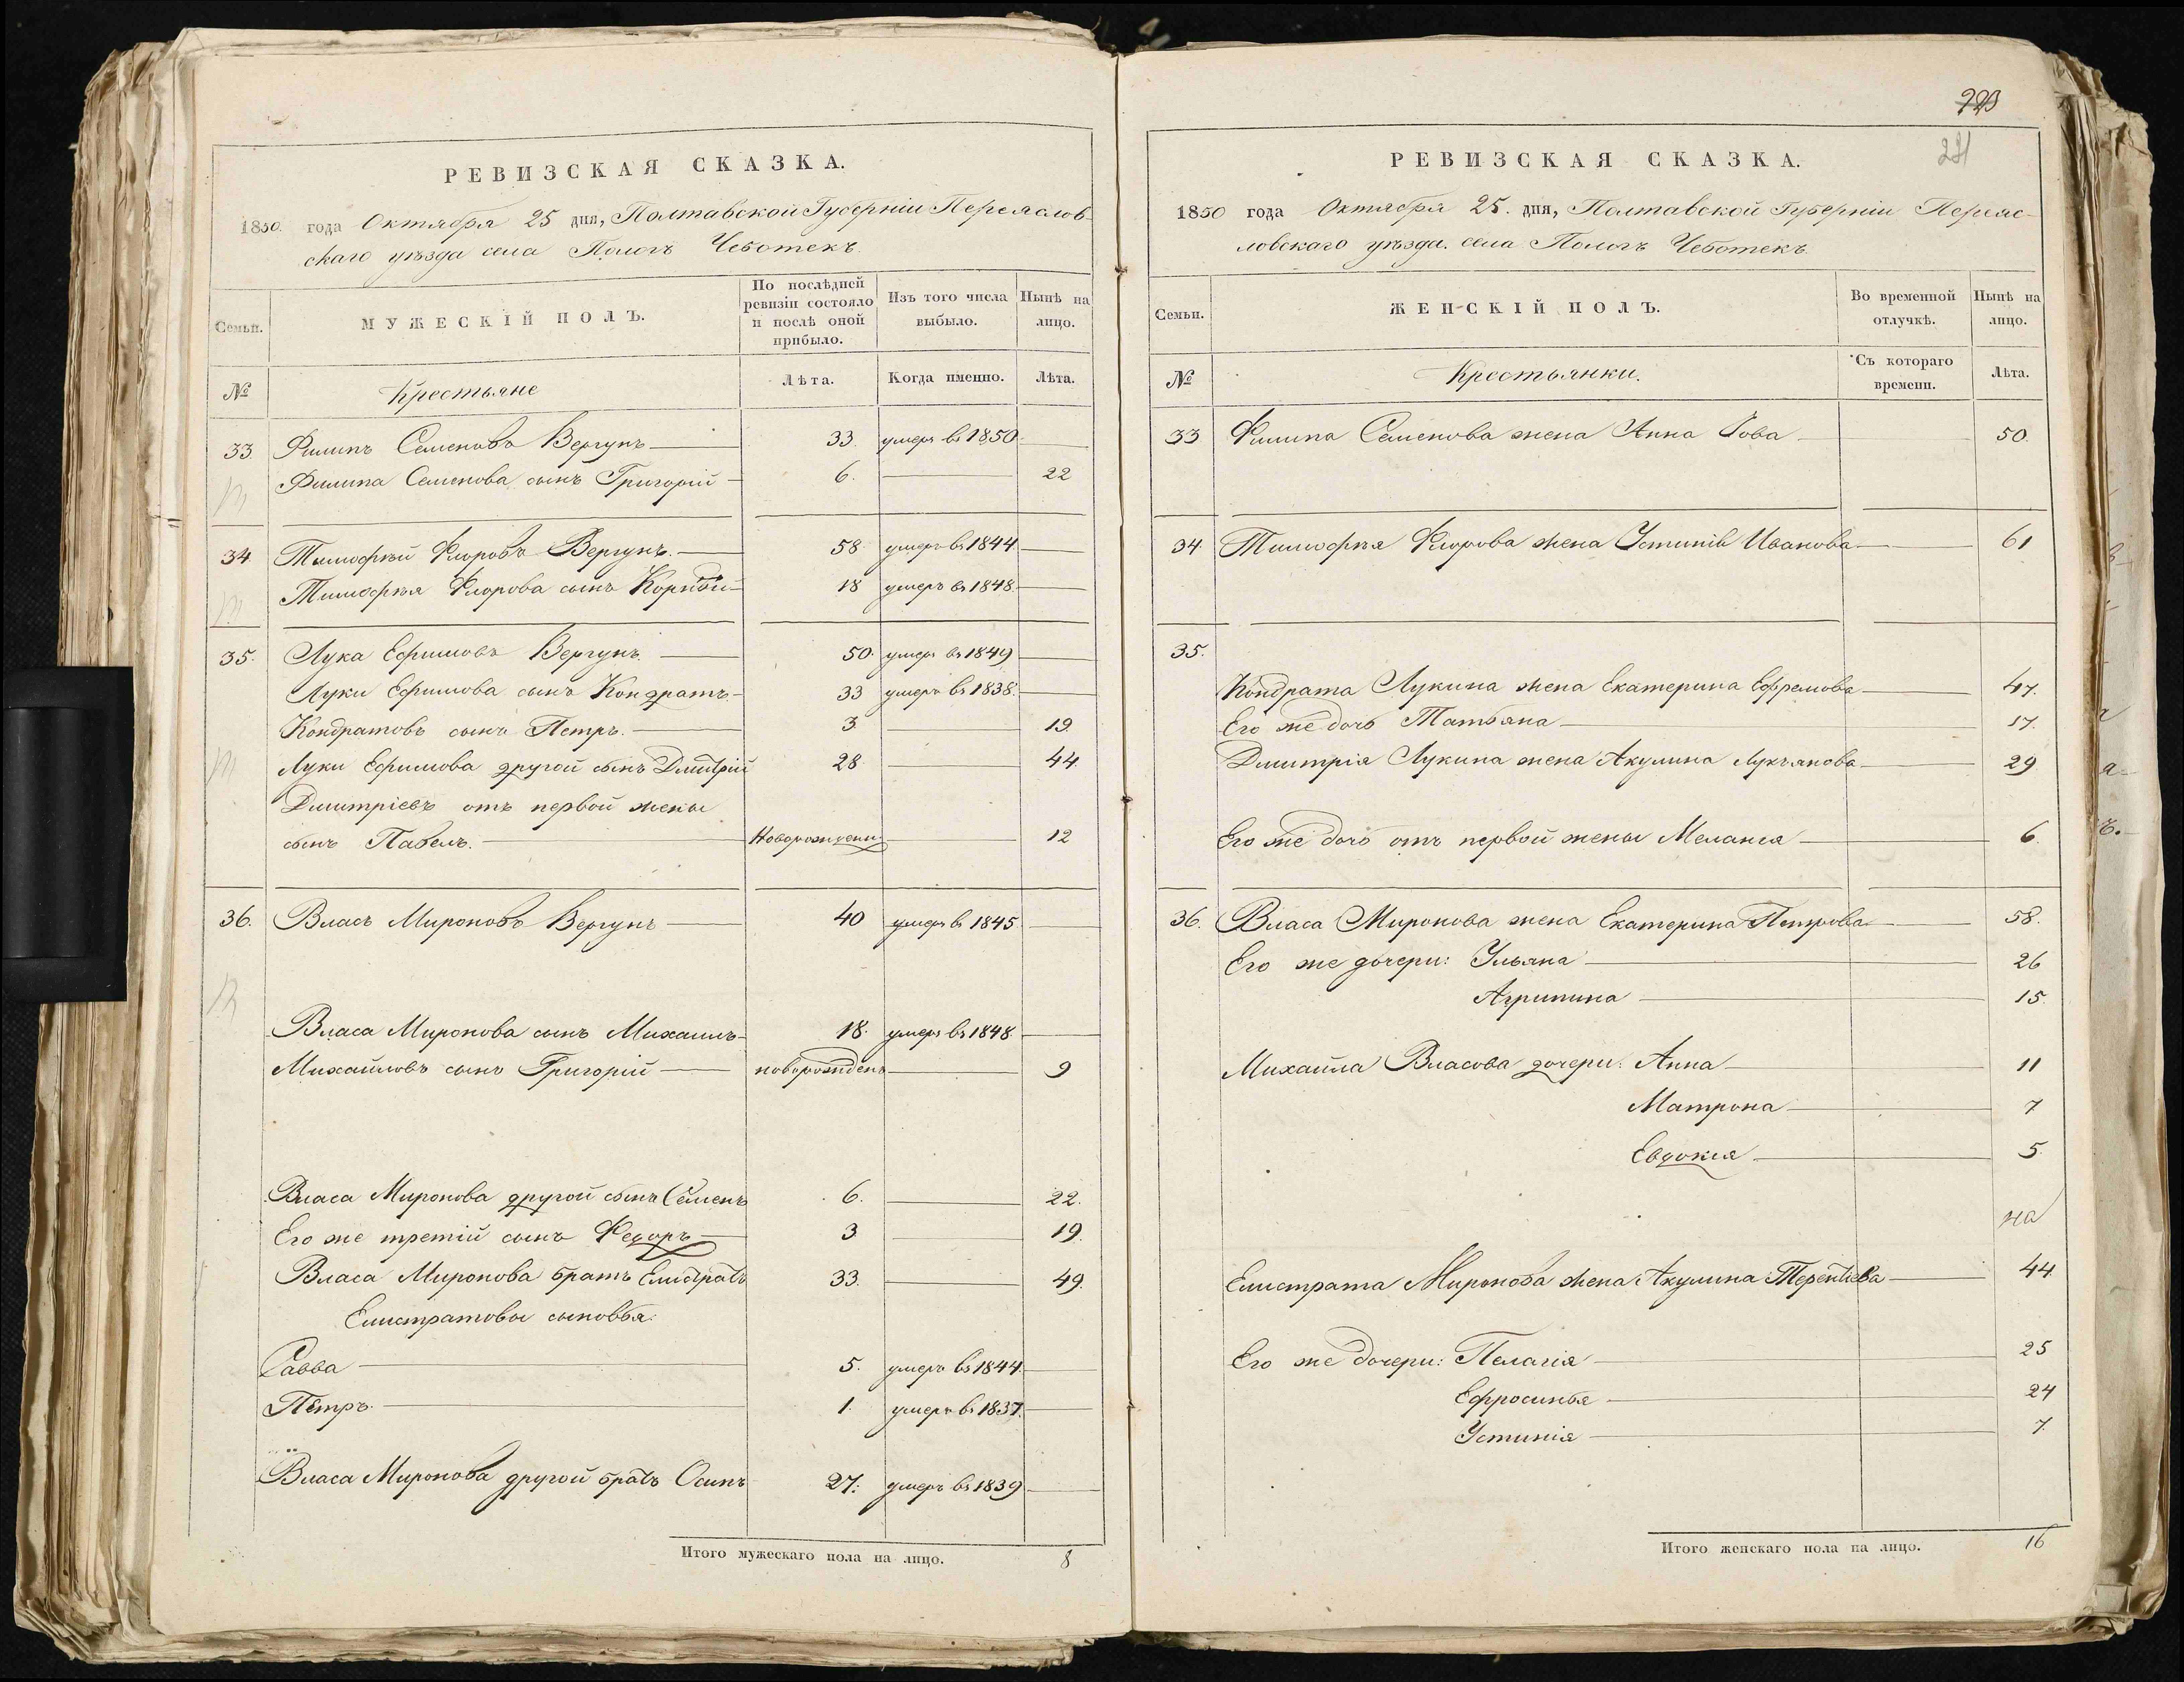 РЕВИЗСКАЯ СКАЗКА.
1850. года Октября 25 дня, Полтавской Губерніи Переяслов-
скаго уѣзда села Пологъ Чеботекъ.
Семьи.
МУЖЕСКІЙ ПОЛЪ.
По послѣдней ревизіи состояло и послѣ оной прибыло.
Изъ того числа выбыло.
Нынѣ на лицо.
№ Крестьяне Лѣта. Когда именно. Лѣта.
33. Филипъ Семеновъ Вергунъ 33. умеръ въ 1850.
Филипа Семенова сынъ Григорій 6. 22
34. Тимофѣй Флоровъ Вергунъ. 58 умеръ въ 1844
Тимофѣя Флорова сынъ Корнѣй 18 умеръ въ 1848.
35. Лука Ефимовъ Вергунъ. 50. умеръ въ 1849
Луки Ефимова сынъ Кондратъ 33 умеръ въ 1838.
Кондратовъ сынъ Петръ. 3 19.
Луки Ефимова другой сынъ Дмитрій 28 44.
Дмитріевъ отъ первой жены
сынъ Павелъ. Новорожденъ 12
36. Власъ Мироновъ Вергунъ 40 умеръ въ 1845
Власа Миронова сынъ Михаилъ 18. умеръ въ 1848
Михайловъ сынъ Григорій новорожденъ 9
Власа Миронова другой сынъ Семенъ 6. 22.
Его же третій сынъ Федоръ 3 19.
Власа Миронова братъ Елистратъ 33. 49.
Елистратовы сыновья:
Савва 5. умеръ въ 1844.
Петръ. 1. умеръ въ 1837.
Власа Миронова другой братъ Осипъ 27. умеръ въ 1839
Итого мужескаго пола на лицо. 8
РЕВИЗСКАЯ СКАЗКА.
1850 года Октября 25. дня, Полтавской Губерніи Переяс-
ловскаго уѣзда. села Пологъ Чеботекъ.
Семьи.
ЖЕНСКІЙ ПОЛЪ.
Во временной отлучкѣ.
Нынѣ на лицо.
№ Крестьянки. Съ котораго времени. Лѣта.
33 Филипа Семенова жена Анна Іова 50.
34. Тимофѣя Флорова жена Устинія Иванова 61
35.
Кондрата Лукина жена Екатерина Ефремова 47.
Его же дочь Татьяна 17.
Дмитрія Лукина жена Акулина Лукьянова 29
Его же дочь отъ первой жены Меланія 6.
36. Власа Миронова жена Екатерина Петрова 58.
Его же дочери: Ульяна 26
Агрипина 15.
Михаила Власова дочери: Анна 11
Матрона 7
Евдокія 5.
на
Елистрата Миронова жена Акулина Терентіева 44.
Его же дочери: Пелагія 25
Ефросинья 24
Устинія 7.
Итого женскаго пола на лицо. 16